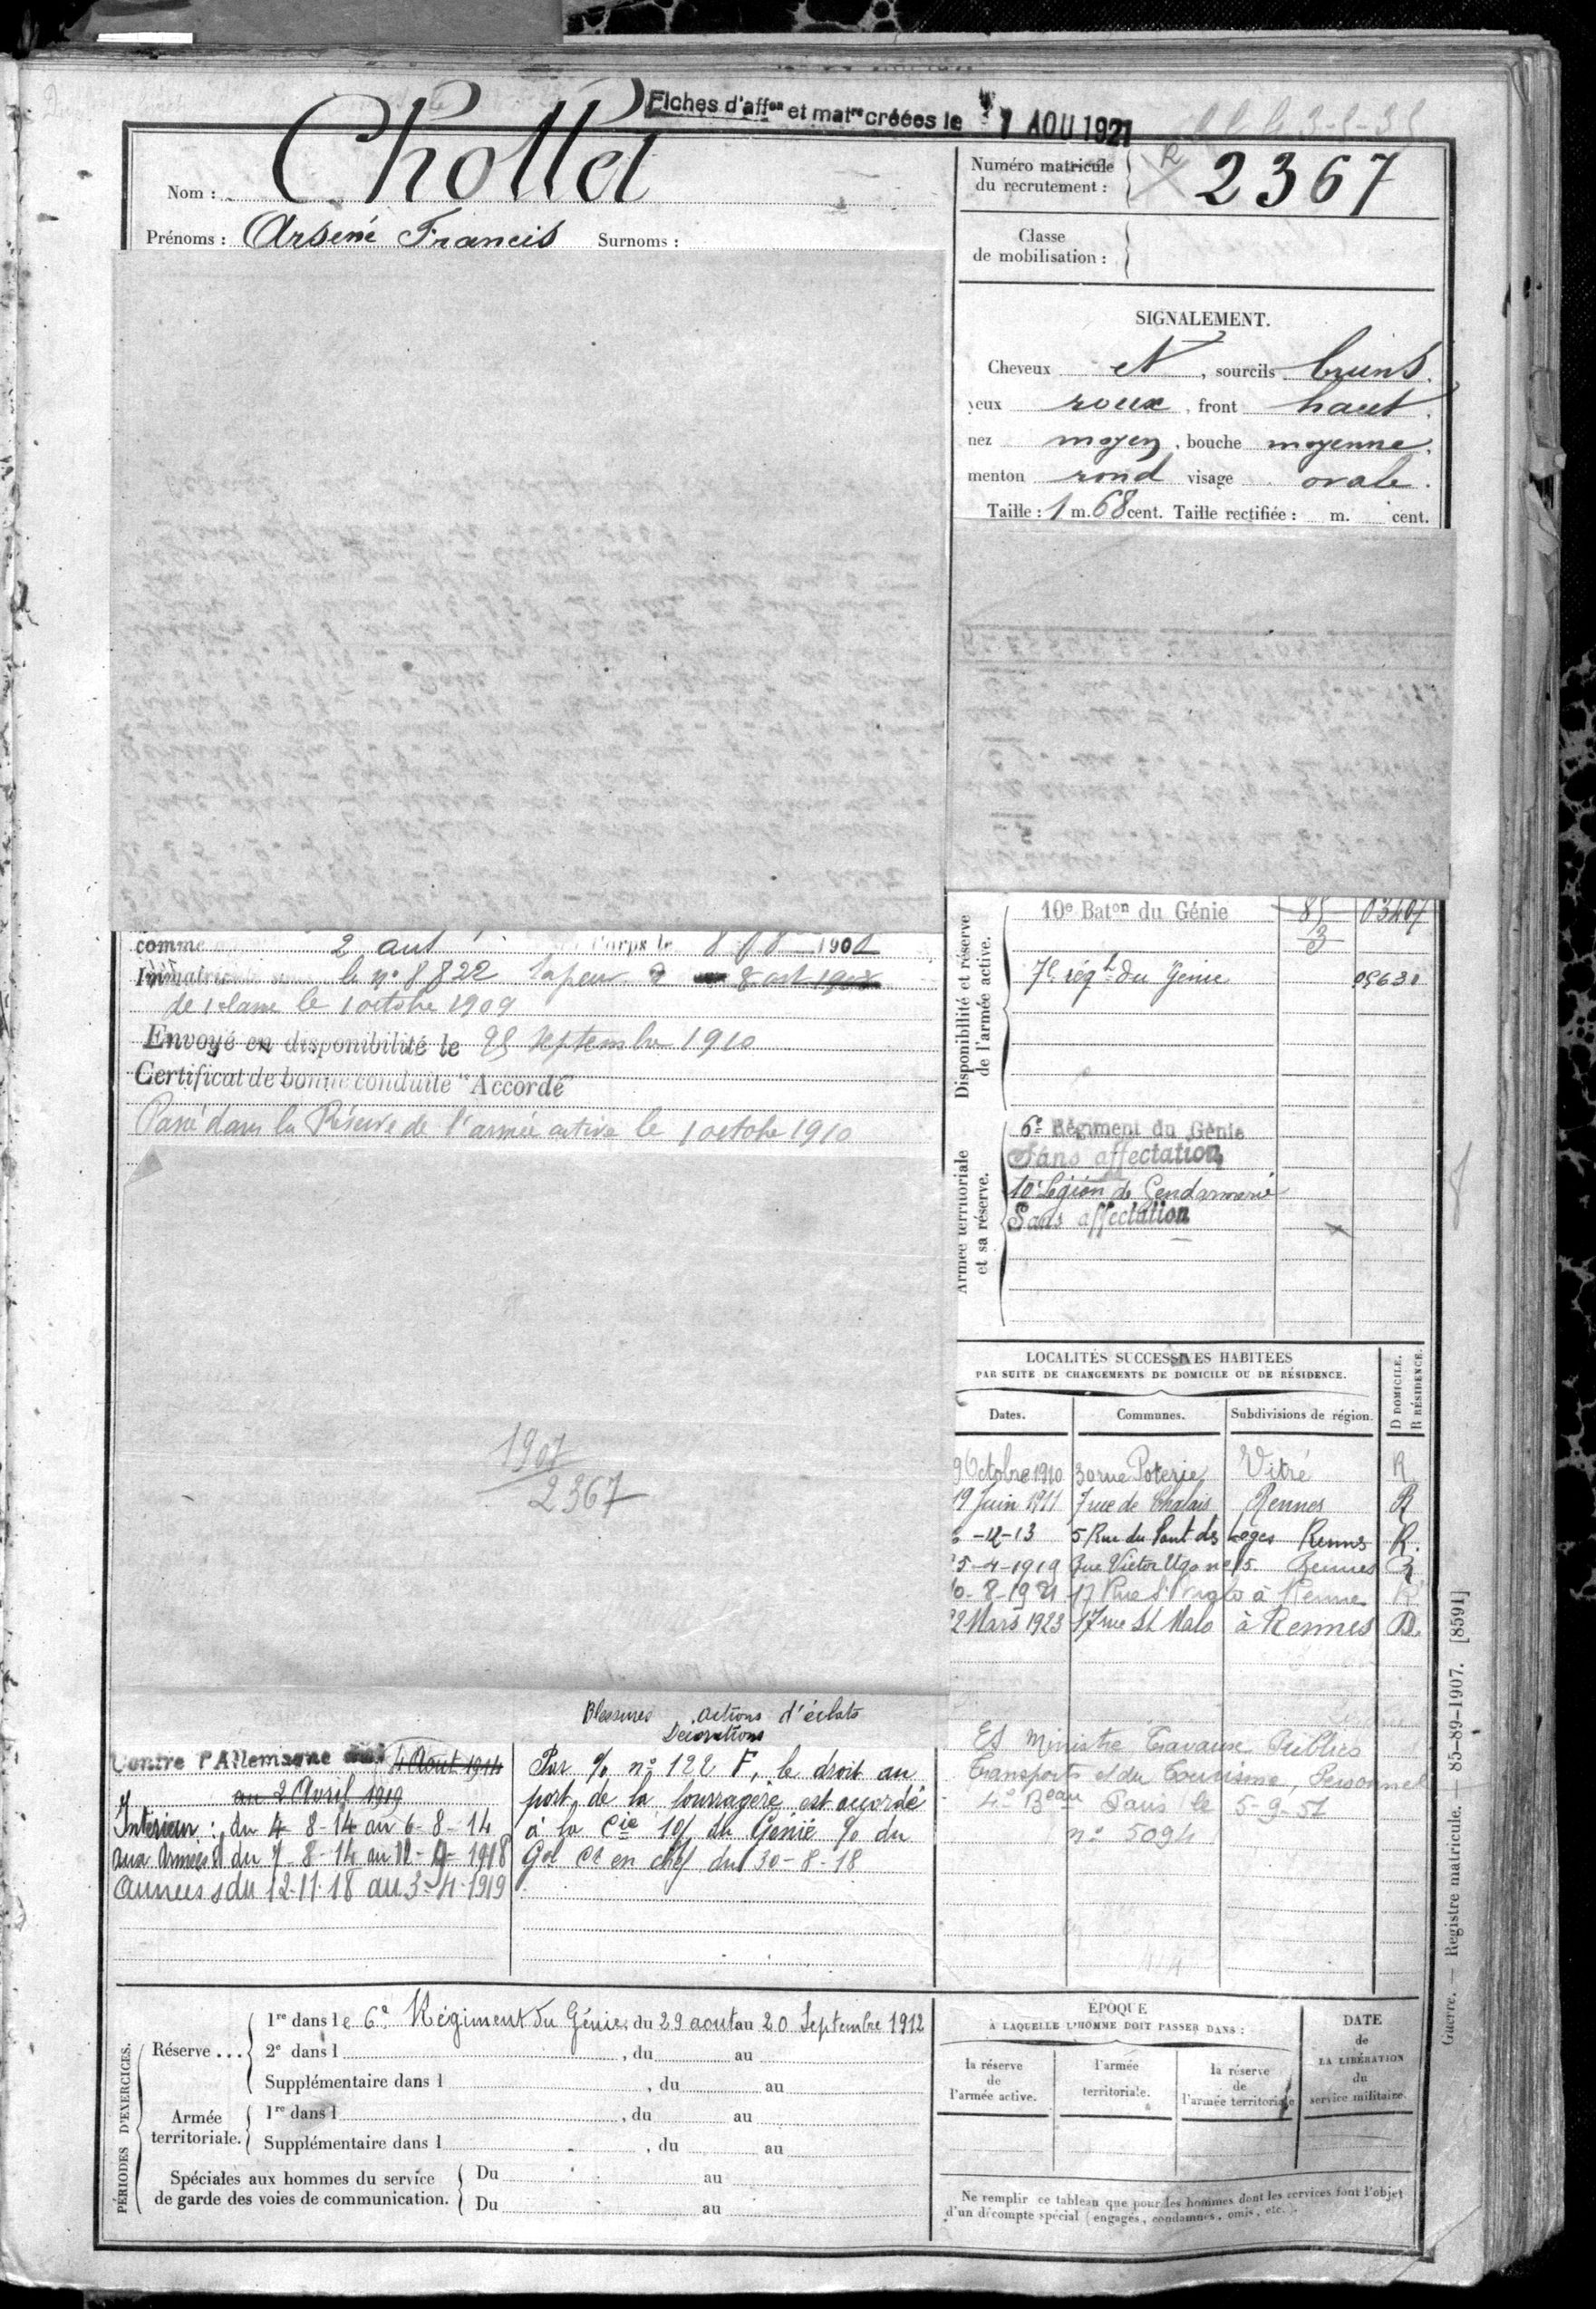 Fiches d'affon et matre créées le 1 AOU 1921
Nom : Chollet
Prénoms : Arsène Francis Surnoms :
Numéro matricule
du recrutement : 2367
Classe
de mobilisation :
SIGNALEMENT.
Cheveux et N, sourcils bruns.
yeux roux, front haut,
nez moyen, bouche moyenne,
menton rond visage ovale.
Taille : 1 m. 68 cent. Taille rectifiée : m. cent.
comme 2 aut Corps le 8 1908
le n° 8822 Sapeur 2 8 oct 1908
de 1 classe le 1 octobre 1909
Envoyé en disponibilité le 25 septembre 1910
Certificat de bonne conduite "Accordé"
Passé dans la Réserve de l'armée active le 1 octobre 1910
Disponibilité et réserve
de l'armée active.
10e Baton du Génie 85 03407
3
7e régt du Génie 05631
Armée territoriale
et sa réserve.
6e Régiment du Génie
Sans affectation
10e Légion de Gendarmerie
Sans affectation
1907
2367
LOCALITÉS SUCCESSIVES HABITÉES
PAR SUITE DE CHANGEMENTS DE DOMICILE OU DE RÉSIDENCE.
Dates. Communes. Subdivisions de région. D DOMICILE. R RÉSIDENCE.
9 Octobre 1910 30 rue Poterie Vitré R
19 Juin 1911 7 rue de Chalais Rennes R
-12-13 5 Rue du Pont des Loges Rennes R.
5-4-1919 Rue Victor Ugo n° 15. Rennes R
0-8-1921 17 Rue St Malo à Rennes R
2 Mars 1923 17 rue St Malo à Rennes D
Et Ministre Travaux Publics
Transports et du Tourisme, Personnel
4e Beau Paris le 5-9-51
n° 5094
Blessures Actions d'éclats
Décorations
Contre l'Allemagne du 4 Aout 1914
au 2 Avril 1919
Intérieur : du 4-8-14 au 6-8-14
aux Armées du 7-8-14 au 11-11-1918
Armées du 12-11-18 au 3-4-1919
Par % n° 122 F, le droit au
port de la fourragère est accordé
à la Cie 10/ du Génie % du
Gal Ct en chef du 30-8-18
PÉRIODES D'EXERCICES.
Réserve ...
1re dans le 6e Régiment du Génie du 29 aout au 20 Septembre 1912
2e dans l , du au
Supplémentaire dans l , du au
Armée
territoriale.
1re dans l , du au
Supplémentaire dans l , du au
Spéciales aux hommes du service
de garde des voies de communication.
Du au
Du au
ÉPOQUE
À LAQUELLE L'HOMME DOIT PASSER DANS :
la réserve
de
l'armée active.
l'armée
territoriale.
la réserve
de
l'armée territoriale
DATE
de
LA LIBÉRATION
du
service militaire.
Ne remplir ce tableau que pour les hommes dont les services font l'objet
d'un décompte spécial (engagés, condamnés, omis, etc.).
Guerre. — Registre matricule. — 85-89-1907. [8591]